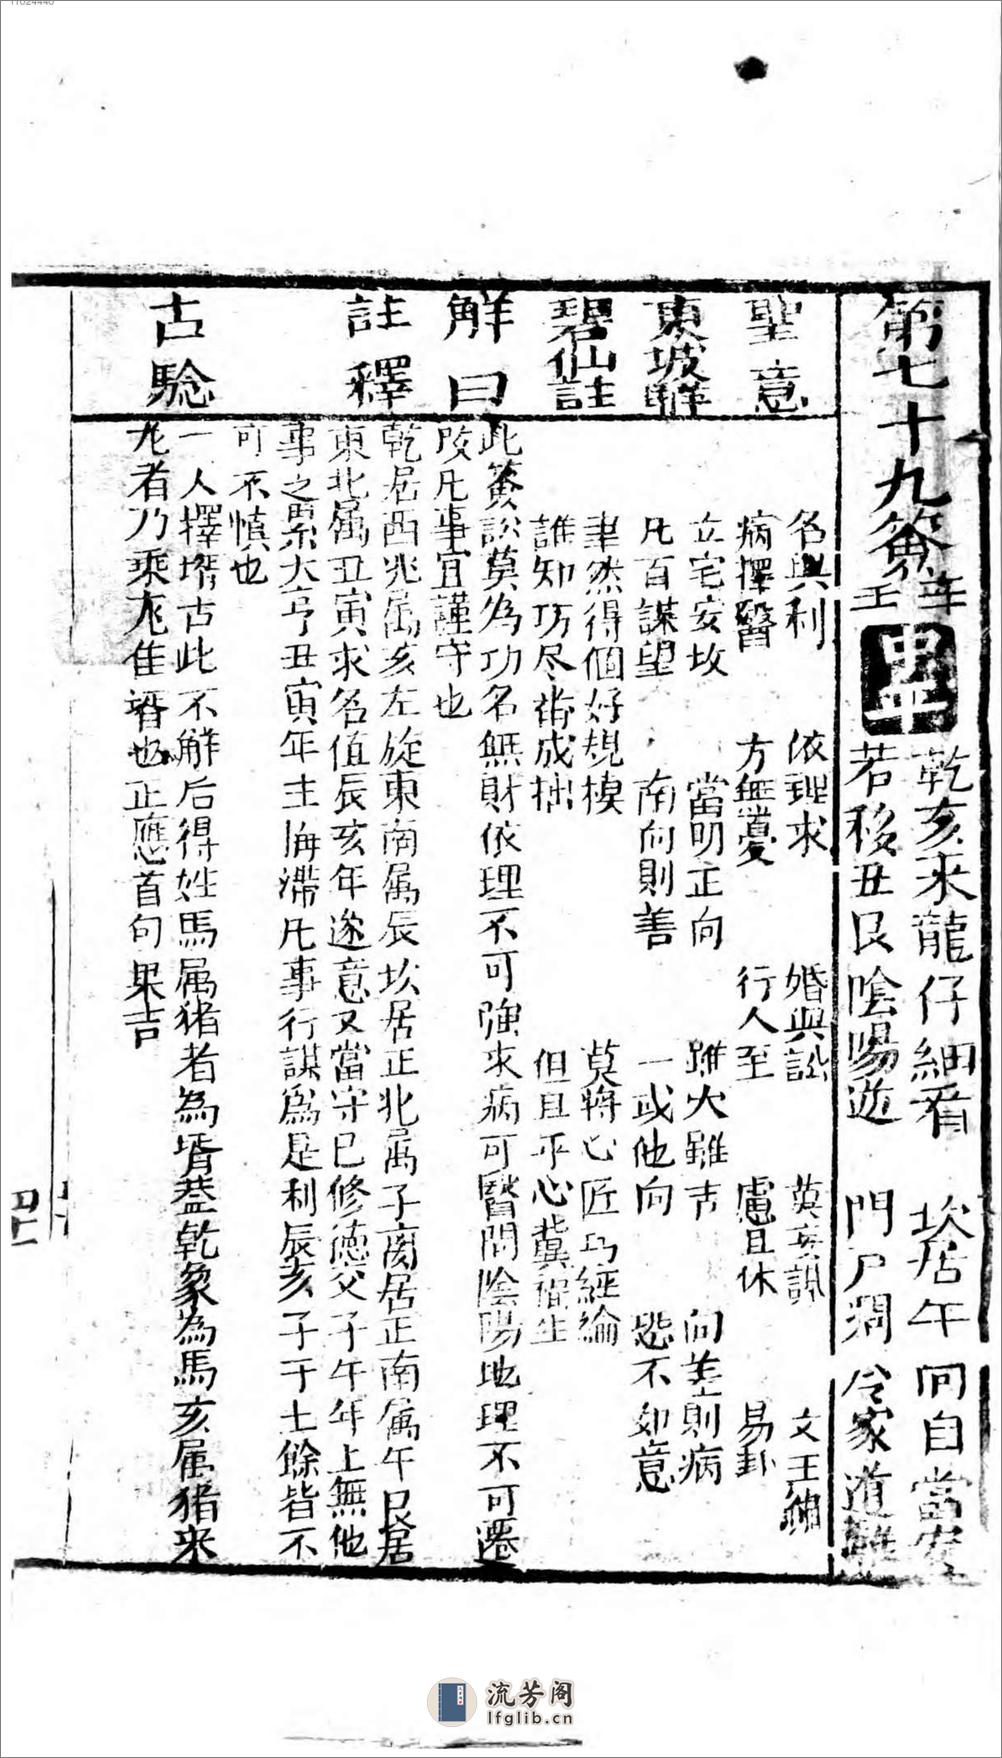 第七十九簽 辛壬 中平
乾亥來龍仔細看 坎居午向自當安
若移丑艮陰陽逆 門戶凋令家道難
聖意
名與利 依理求 婚與訟 莫妄訊 文王
病擇醫 方無憂 行人至 慮且休 易卦
東坡解
立宅安坟 當明正向 雖大雖吉 向差則病
凡百謀望 南向則善 一或他向 恐不如意
碧仙註
聿然得個好規模 莫將心匠巧經綸
誰知巧尽番成拙 但且平心冀福生
解曰
此簽訟莫為功名無財依理不可強求病可醫問陰陽地理不可遷
改凡事宜謹守也
註釋
乾居西北属亥左旋東南属辰坎居正北属子离居正南属午艮居
東北属丑寅求名值辰亥年遂意又當守已修德父子午年上無他
事之累大亨丑寅年主悔滯凡事行謀為是利辰亥子干土餘皆不
可不慎也
古驗
一人擇壻占此不解后得姓馬属猪者為壻葢乾象為馬亥属猪來
龙者乃乘龙佳壻也正應首句果吉
流芳阁
lfglib.cn